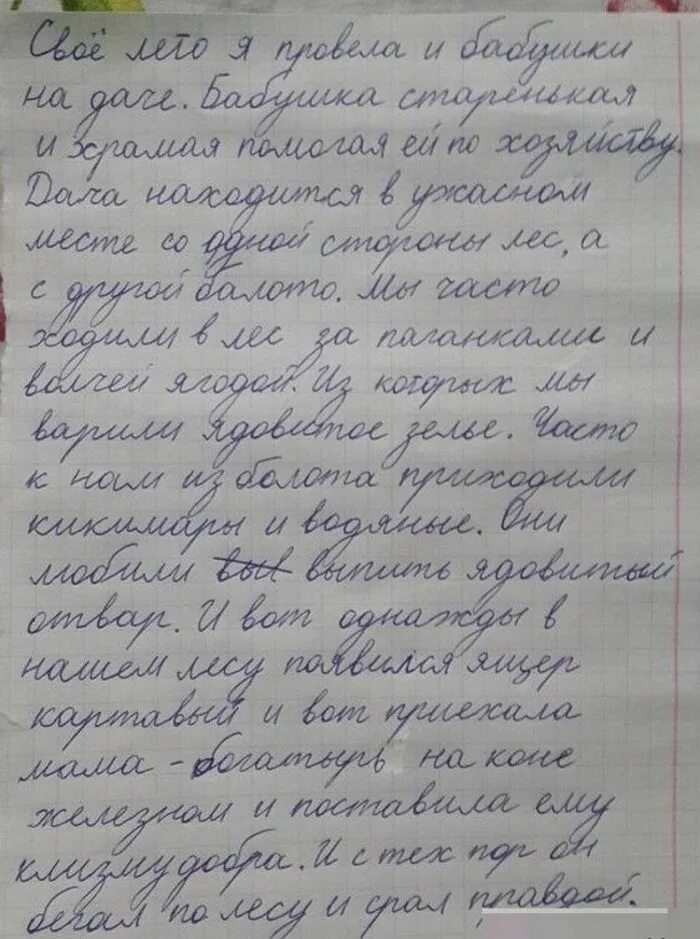 Своё лето я провела и бабушки
на даче. Бабушка старенькая
и храмая помогая ей по хозяйству.
Дача находится в ужасном
месте со одной стороны лес, а
с другой балото. Мы часто
ходили в лес за паганками и
волчей ягодой. Из которых мы
варили ядовитое зелье. Часто
к нам из болота приходили
кикимары и водяные. Они
любили выпить ядовитый
отвар. И вот однажды в
нашем лесу появился ящер
картавый и вот приехала
мама - богатырь на коне
железном и поставила ему
клизму добра. И с тех пор он
бегал по лесу и срал правдой.